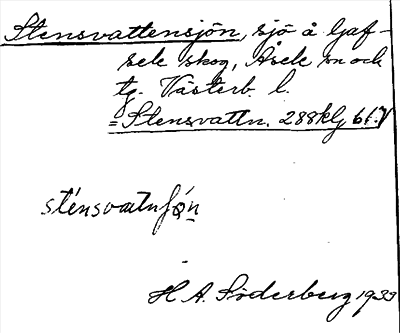 Stensvattensjön, sjö å Gaf-
sele skog, Åsele sn och
tg. Västerb. l.
= Stensvattn. 288 klj 61.
sténsvatn
H. A. Söderberg 1933